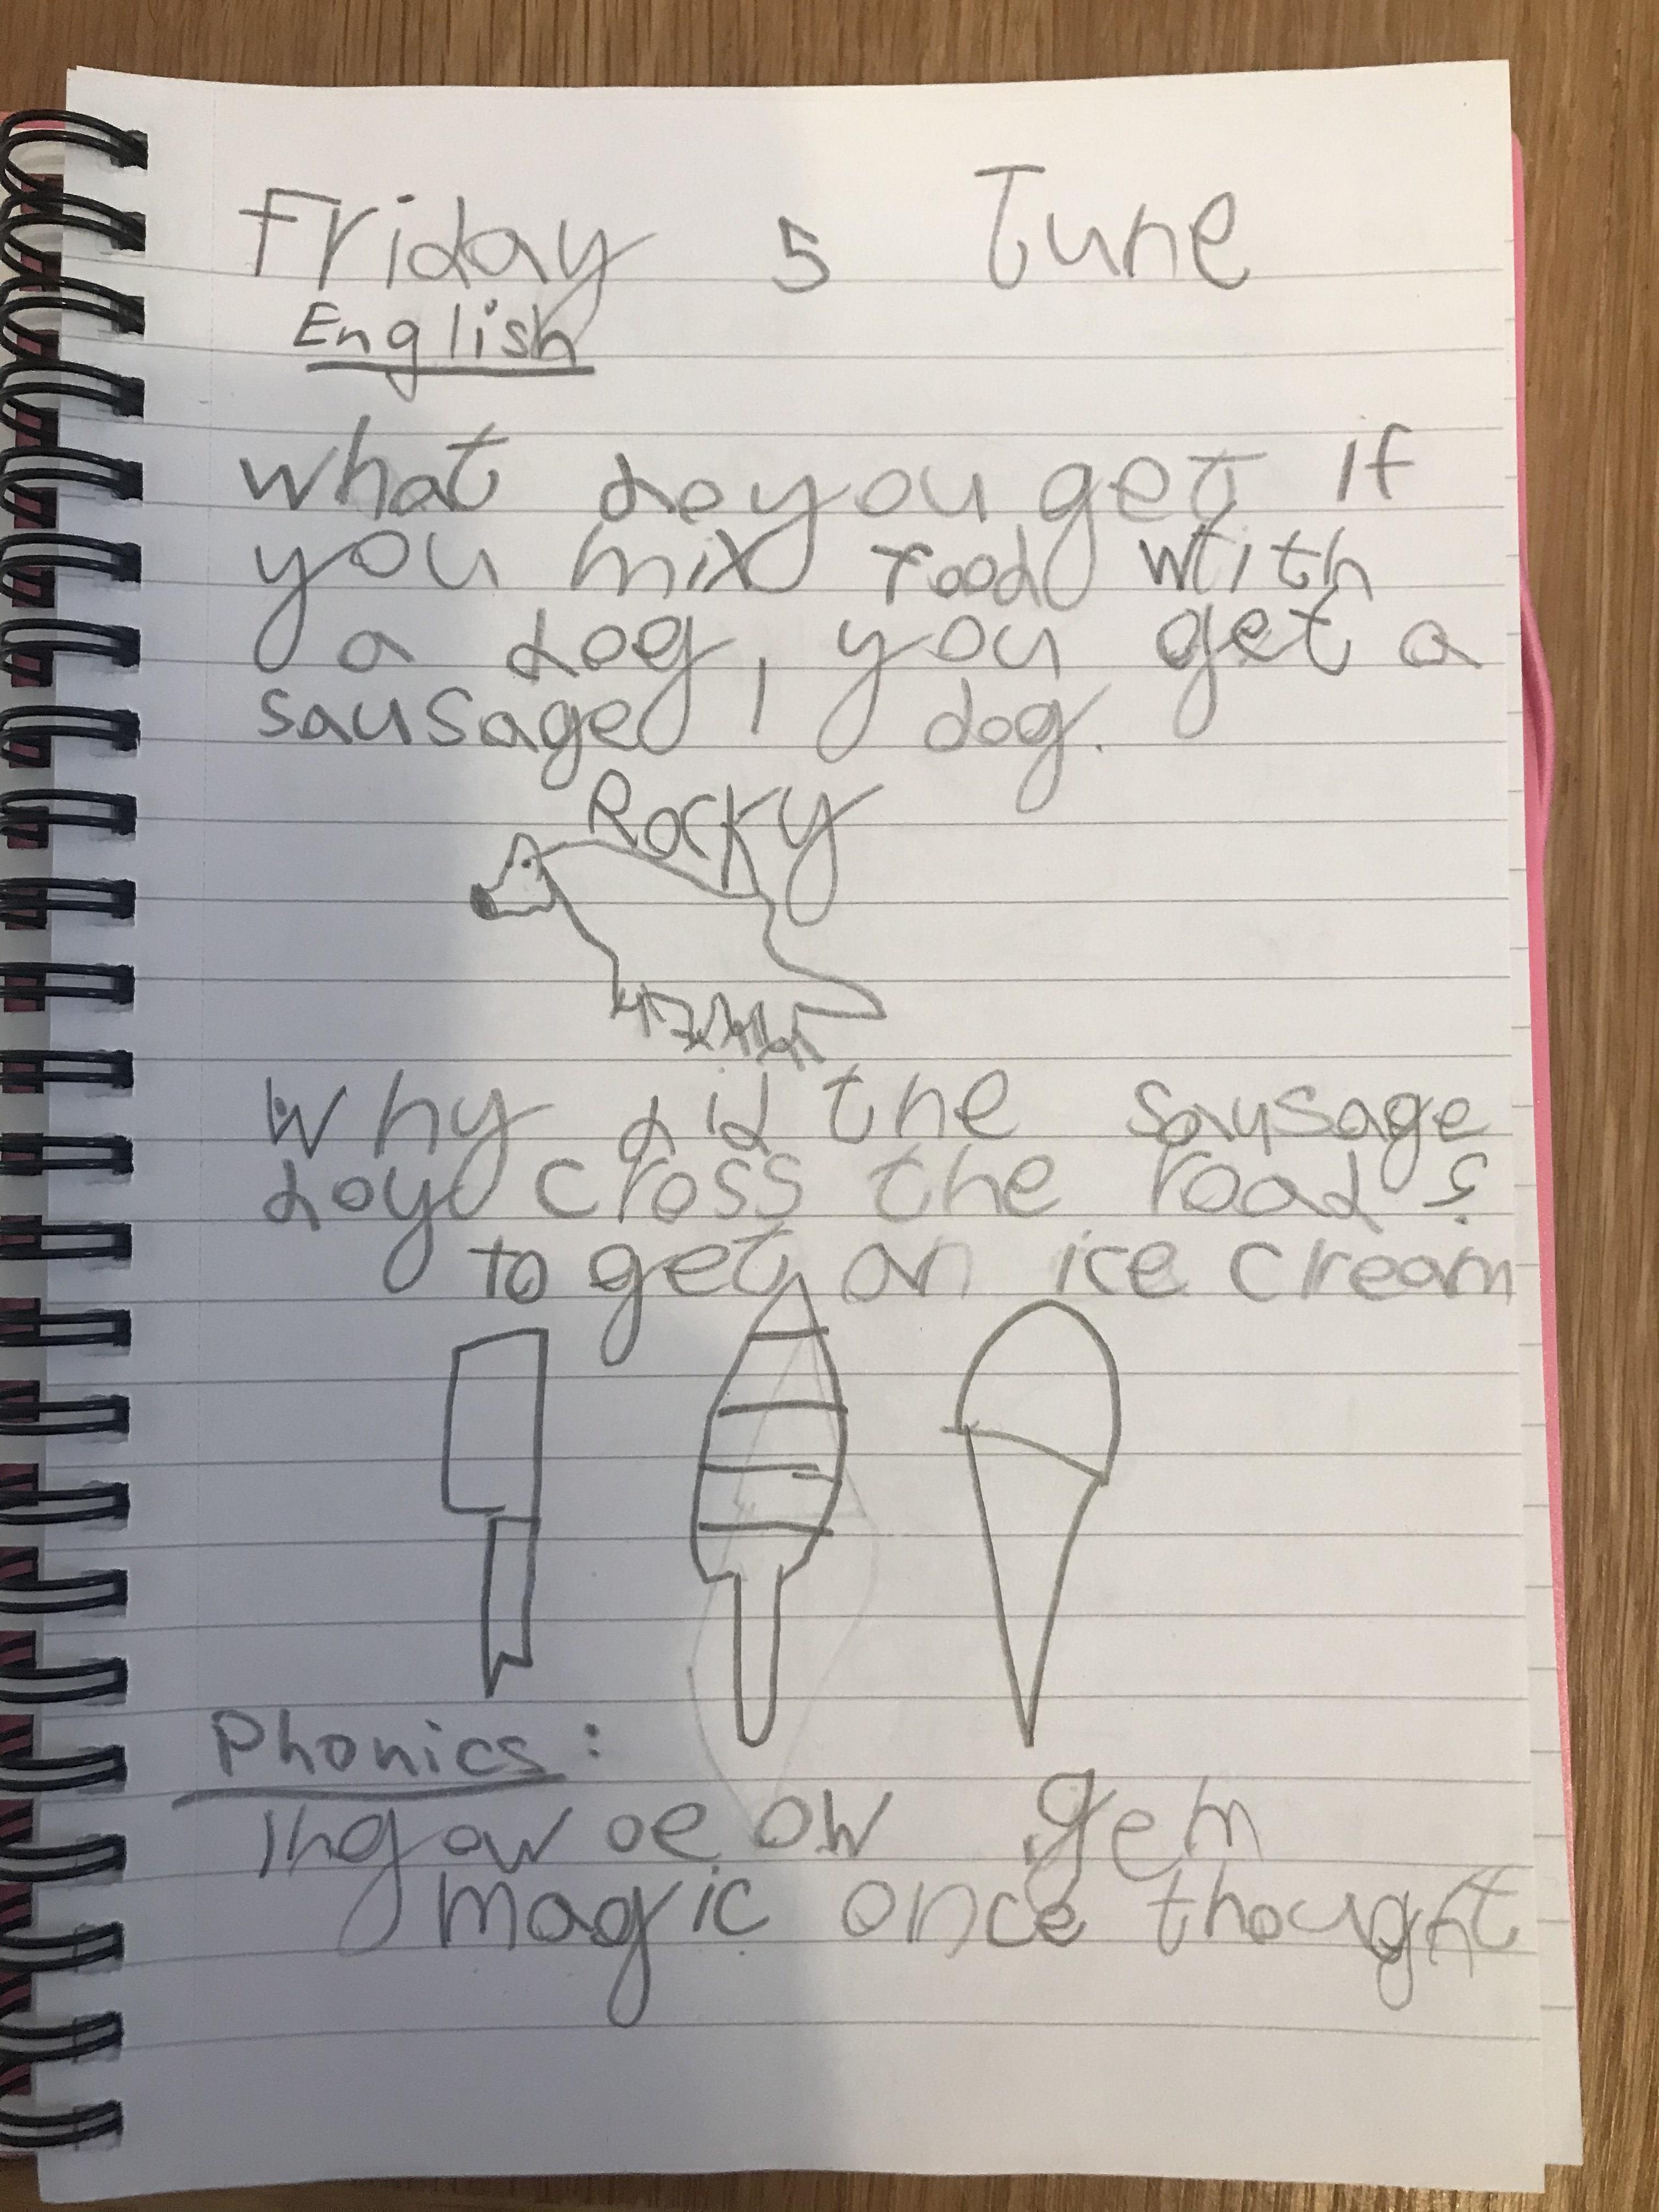 Friday 5 June
English
what do you get if
you mix food with
a dog, you get a
sausage dog.
Rocky
Why did the sausage
dog cross the road?
to get an ice cream
Phonics:
ing ow oe ow gem
magic once thought